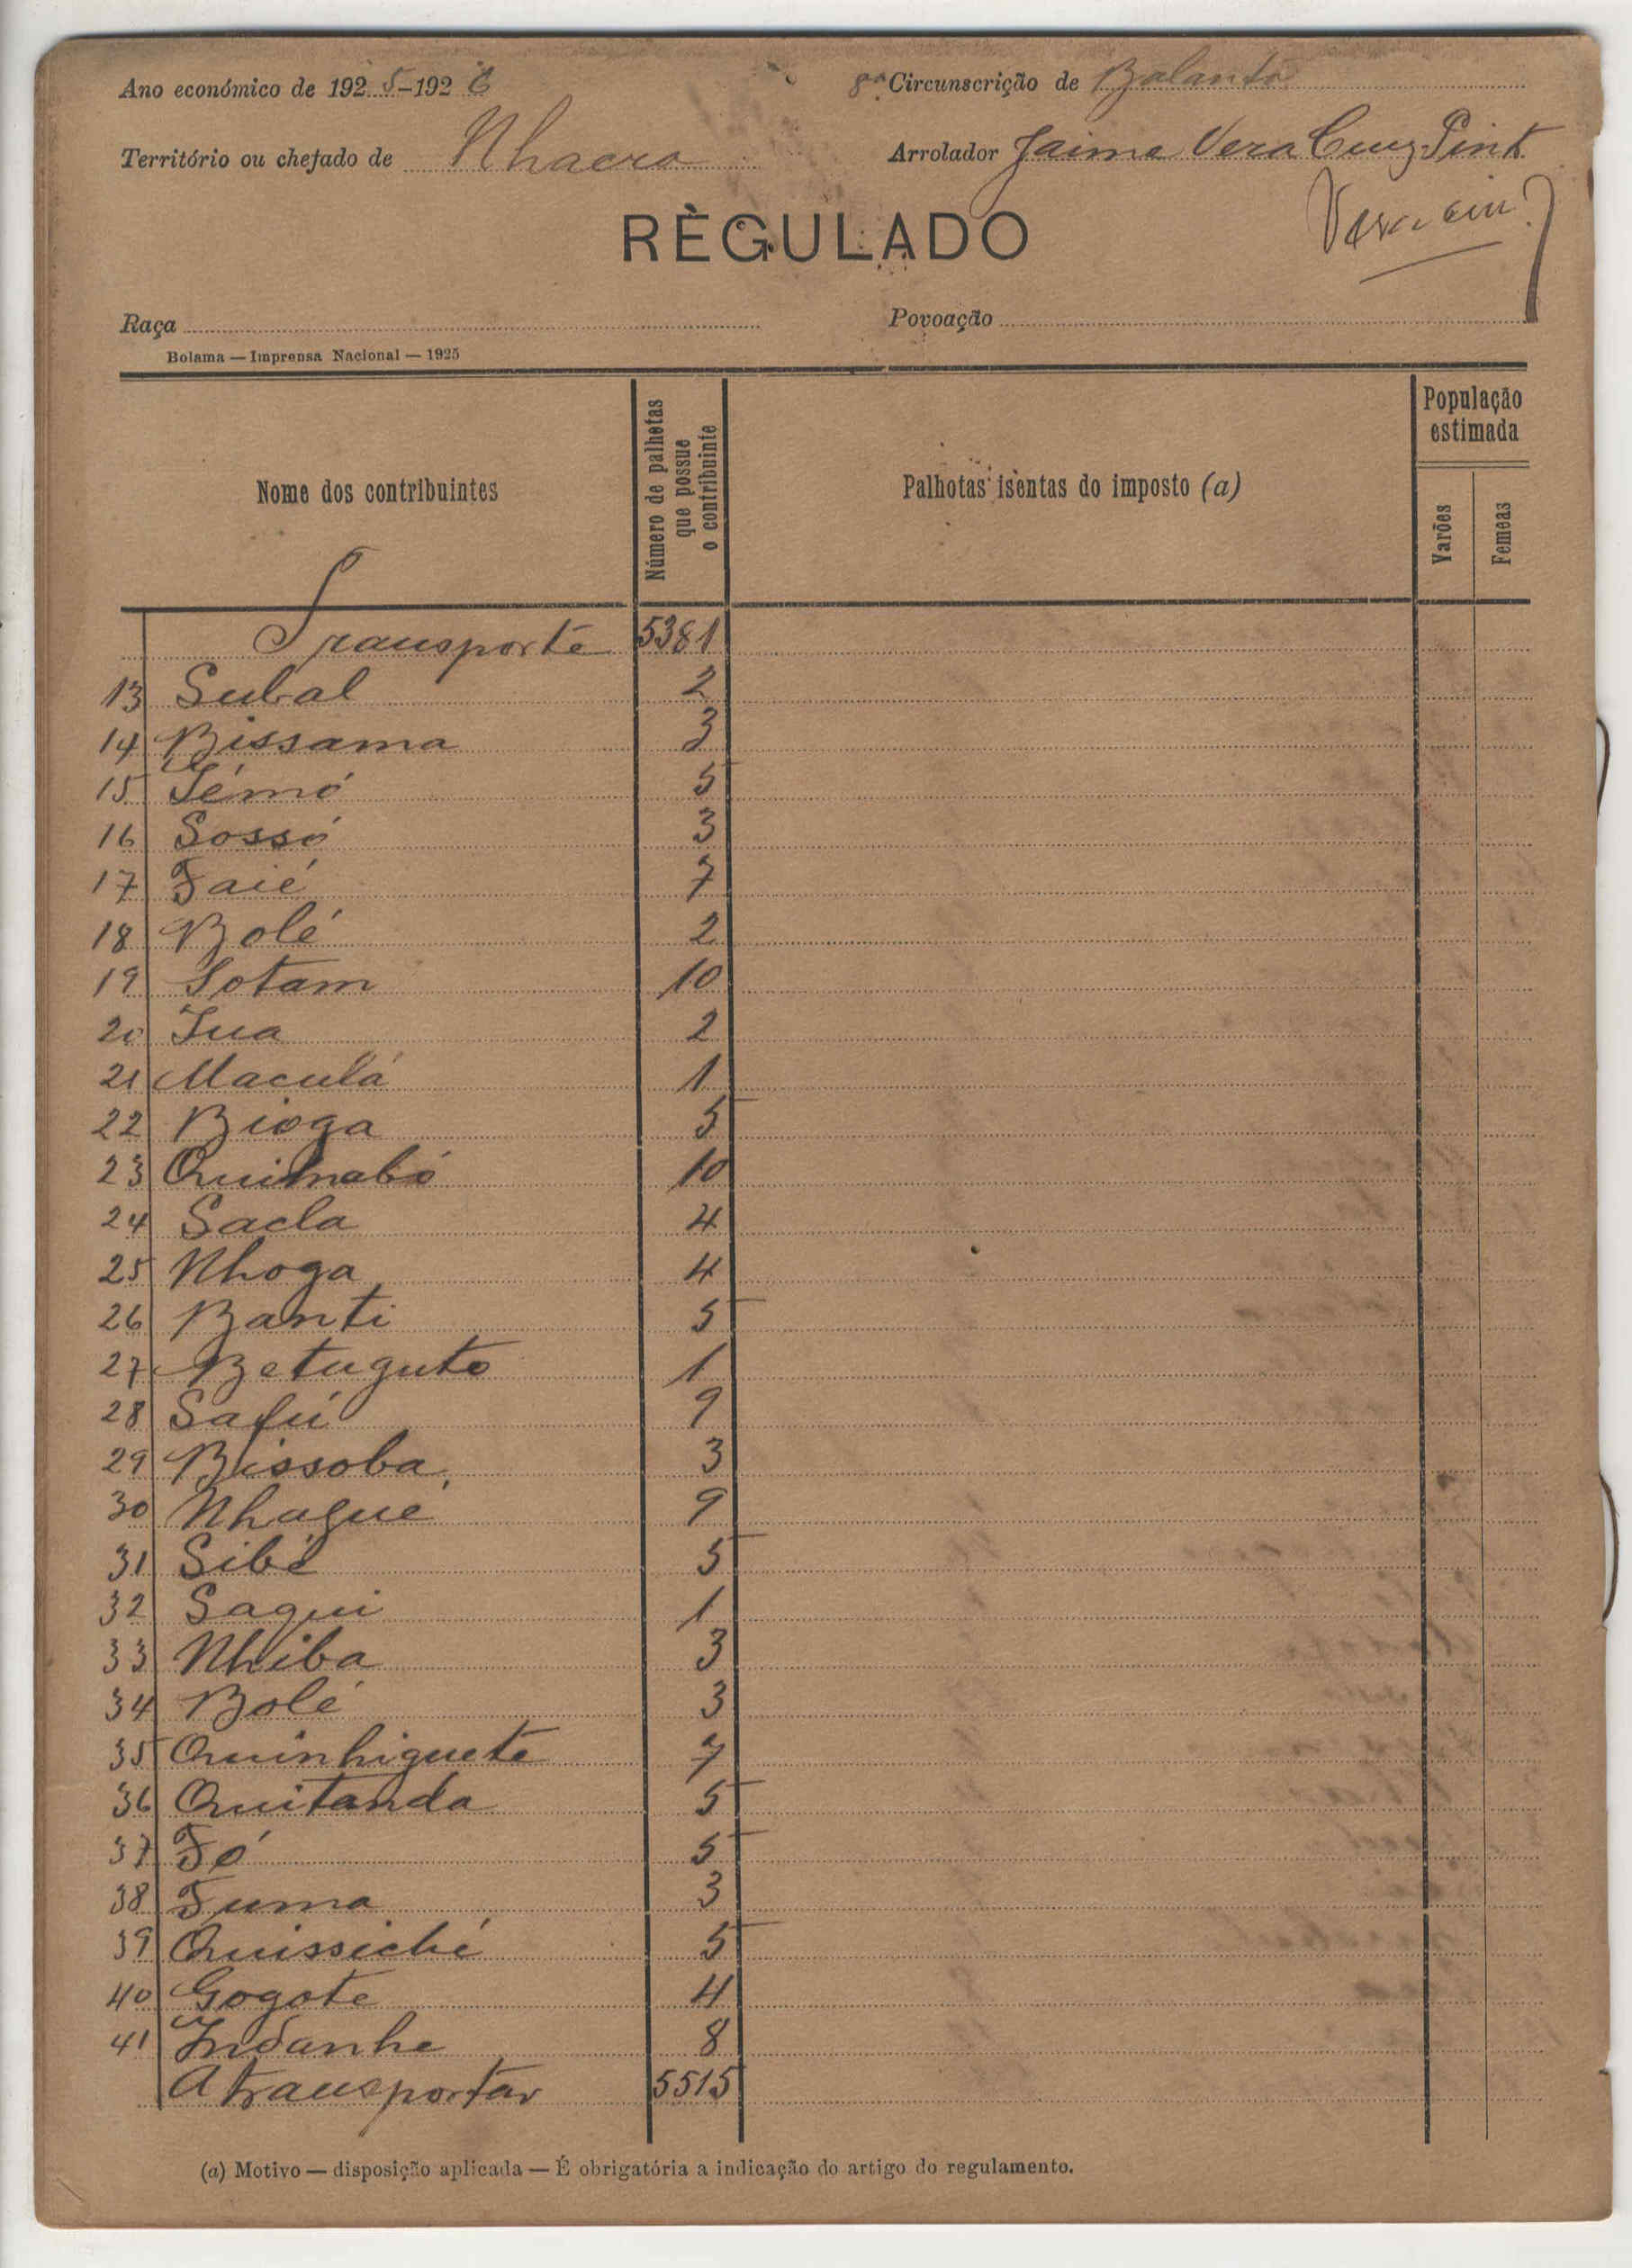 Ano económico de 1925-1926
8ª Circunscrição de Balanta
Território ou chefado de Nhacra
Arrolador Jaime Vera Cruz Pint.
RÈGULADO
Raça
Povoação
Bolama — Imprensa Nacional — 1925
Nome dos contribuintes
Número de palhotas que possue o contribuinte
Palhotas isentas do imposto (a)
População estimada
Varões
Femeas
Transporte 5381
13 Subal 2
14 Bissama 3
15 Témó 5
16 Sossó 3
17 Faié 7
18 Bolé 2
19 Sotam 10
20 Jua 2
21 Maculá 1
22 Bioga 5
23 Quinhabó 10
24 Sacla 4
25 Nhoga 4
26 Banti 5
27 Betuguto 1
28 Safú 9
29 Bissoba 3
30 Nhague 9
31 Sibé 5
32 Sagui 1
33 Nhiba 3
34 Bolé 3
35 Quinhiguete 7
36 Quitanda 5
37 Fó 5
38 Fuma 3
39 Quissiché 5
40 Gogote 4
41 Indanhe 8
A transportar 5515
(a) Motivo — disposição aplicada — É obrigatória a indicação do artigo do regulamento.